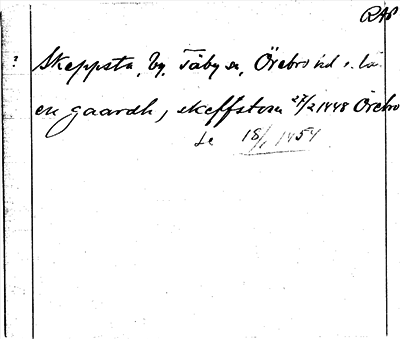 RAP
? Skeppsta, by, Täby sn, Örebro hd o. lä
en gaardh, skeffstom 27/2 1448 Örebro
Se 18/1 1454